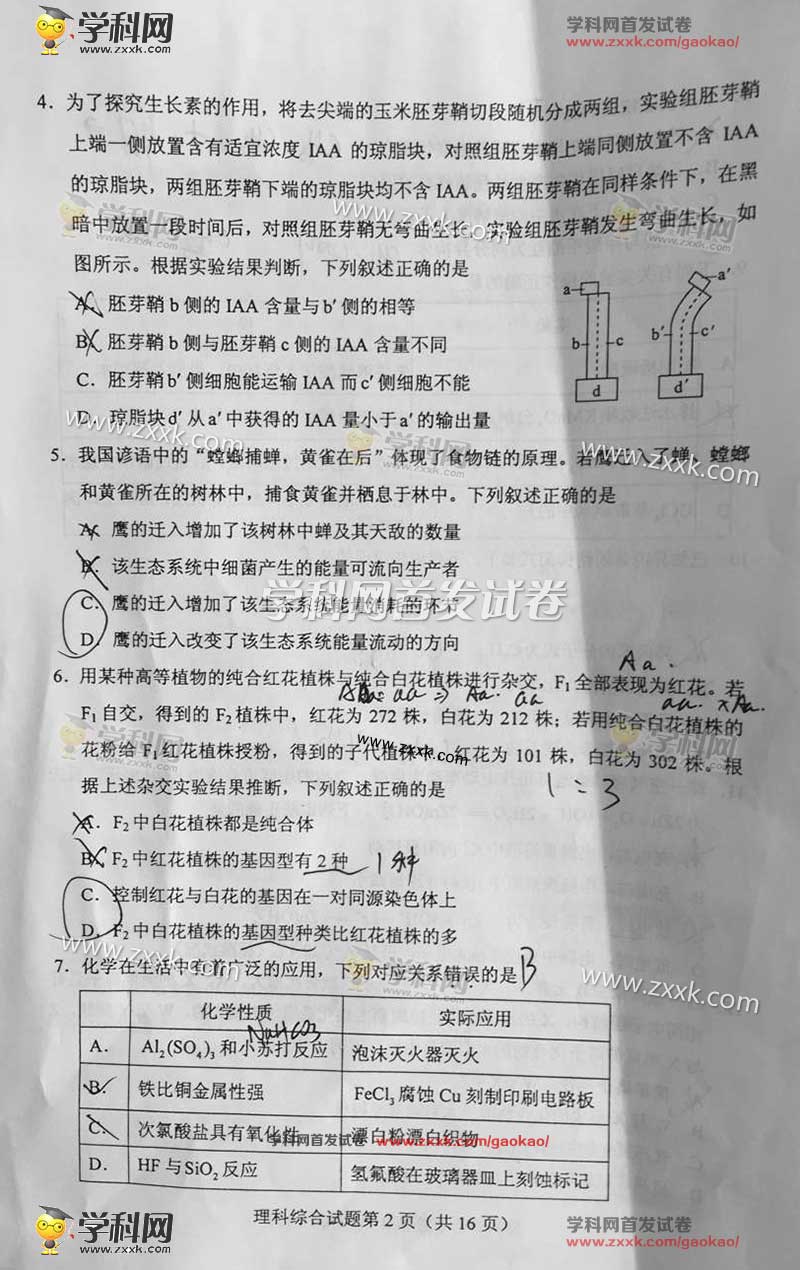 学科网
www.zxxk.com
学科网首发试卷
www.zxxk.com/gaokao/
4．为了探究生长素的作用，将去尖端的玉米胚芽鞘切段随机分成两组，实验组胚芽鞘
上端一侧放置含有适宜浓度 IAA 的琼脂块，对照组胚芽鞘上端同侧放置不含 IAA
的琼脂块，两组胚芽鞘下端的琼脂块均不含 IAA。两组胚芽鞘在同样条件下，在黑
暗中放置一段时间后，对照组胚芽鞘无弯曲生长，实验组胚芽鞘发生弯曲生长，如
图所示。根据实验结果判断，下列叙述正确的是
A．胚芽鞘 b 侧的 IAA 含量与 b′ 侧的相等
B．胚芽鞘 b 侧与胚芽鞘 c 侧的 IAA 含量不同
C．胚芽鞘 b′ 侧细胞能运输 IAA 而 c′ 侧细胞不能
D．琼脂块 d′ 从 a′ 中获得的 IAA 量小于 a′ 的输出量
a
b
c
d
a′
b′
c′
d′
5．我国谚语中的“螳螂捕蝉，黄雀在后”体现了食物链的原理。若鹰迁入了蝉、螳螂
和黄雀所在的树林中，捕食黄雀并栖息于林中。下列叙述正确的是
A．鹰的迁入增加了该树林中蝉及其天敌的数量
B．该生态系统中细菌产生的能量可流向生产者
C．鹰的迁入增加了该生态系统能量消耗的环节
D．鹰的迁入改变了该生态系统能量流动的方向
学科网首发试卷
6．用某种高等植物的纯合红花植株与纯合白花植株进行杂交，F₁ 全部表现为红花。若
Aa.
F₁ 自交，得到的 F₂ 植株中，红花为 272 株，白花为 212 株；若用纯合白花植株的
aa. × Aa.
花粉给 F₁ 红花植株授粉，得到的子代植株中，红花为 101 株，白花为 302 株。根
据上述杂交实验结果推断，下列叙述正确的是
1 : 3
A．F₂ 中白花植株都是纯合体
B．F₂ 中红花植株的基因型有 2 种 1种
C．控制红花与白花的基因在一对同源染色体上
D．F₂ 中白花植株的基因型种类比红花植株的多
7．化学在生活中有着广泛的应用，下列对应关系错误的是 B
化学性质 实际应用
NaHCO3
A． Al₂(SO₄)₃ 和小苏打反应 泡沫灭火器灭火
B． 铁比铜金属性强 FeCl₃ 腐蚀 Cu 刻制印刷电路板
C． 次氯酸盐具有氧化性 漂白粉漂白织物
D． HF 与 SiO₂ 反应 氢氟酸在玻璃器皿上刻蚀标记
学科网首发试卷 www.zxxk.com/gaokao/
理科综合试题第 2 页（共 16 页）
学科网
www.zxxk.com
学科网首发试卷
www.zxxk.com/gaokao/